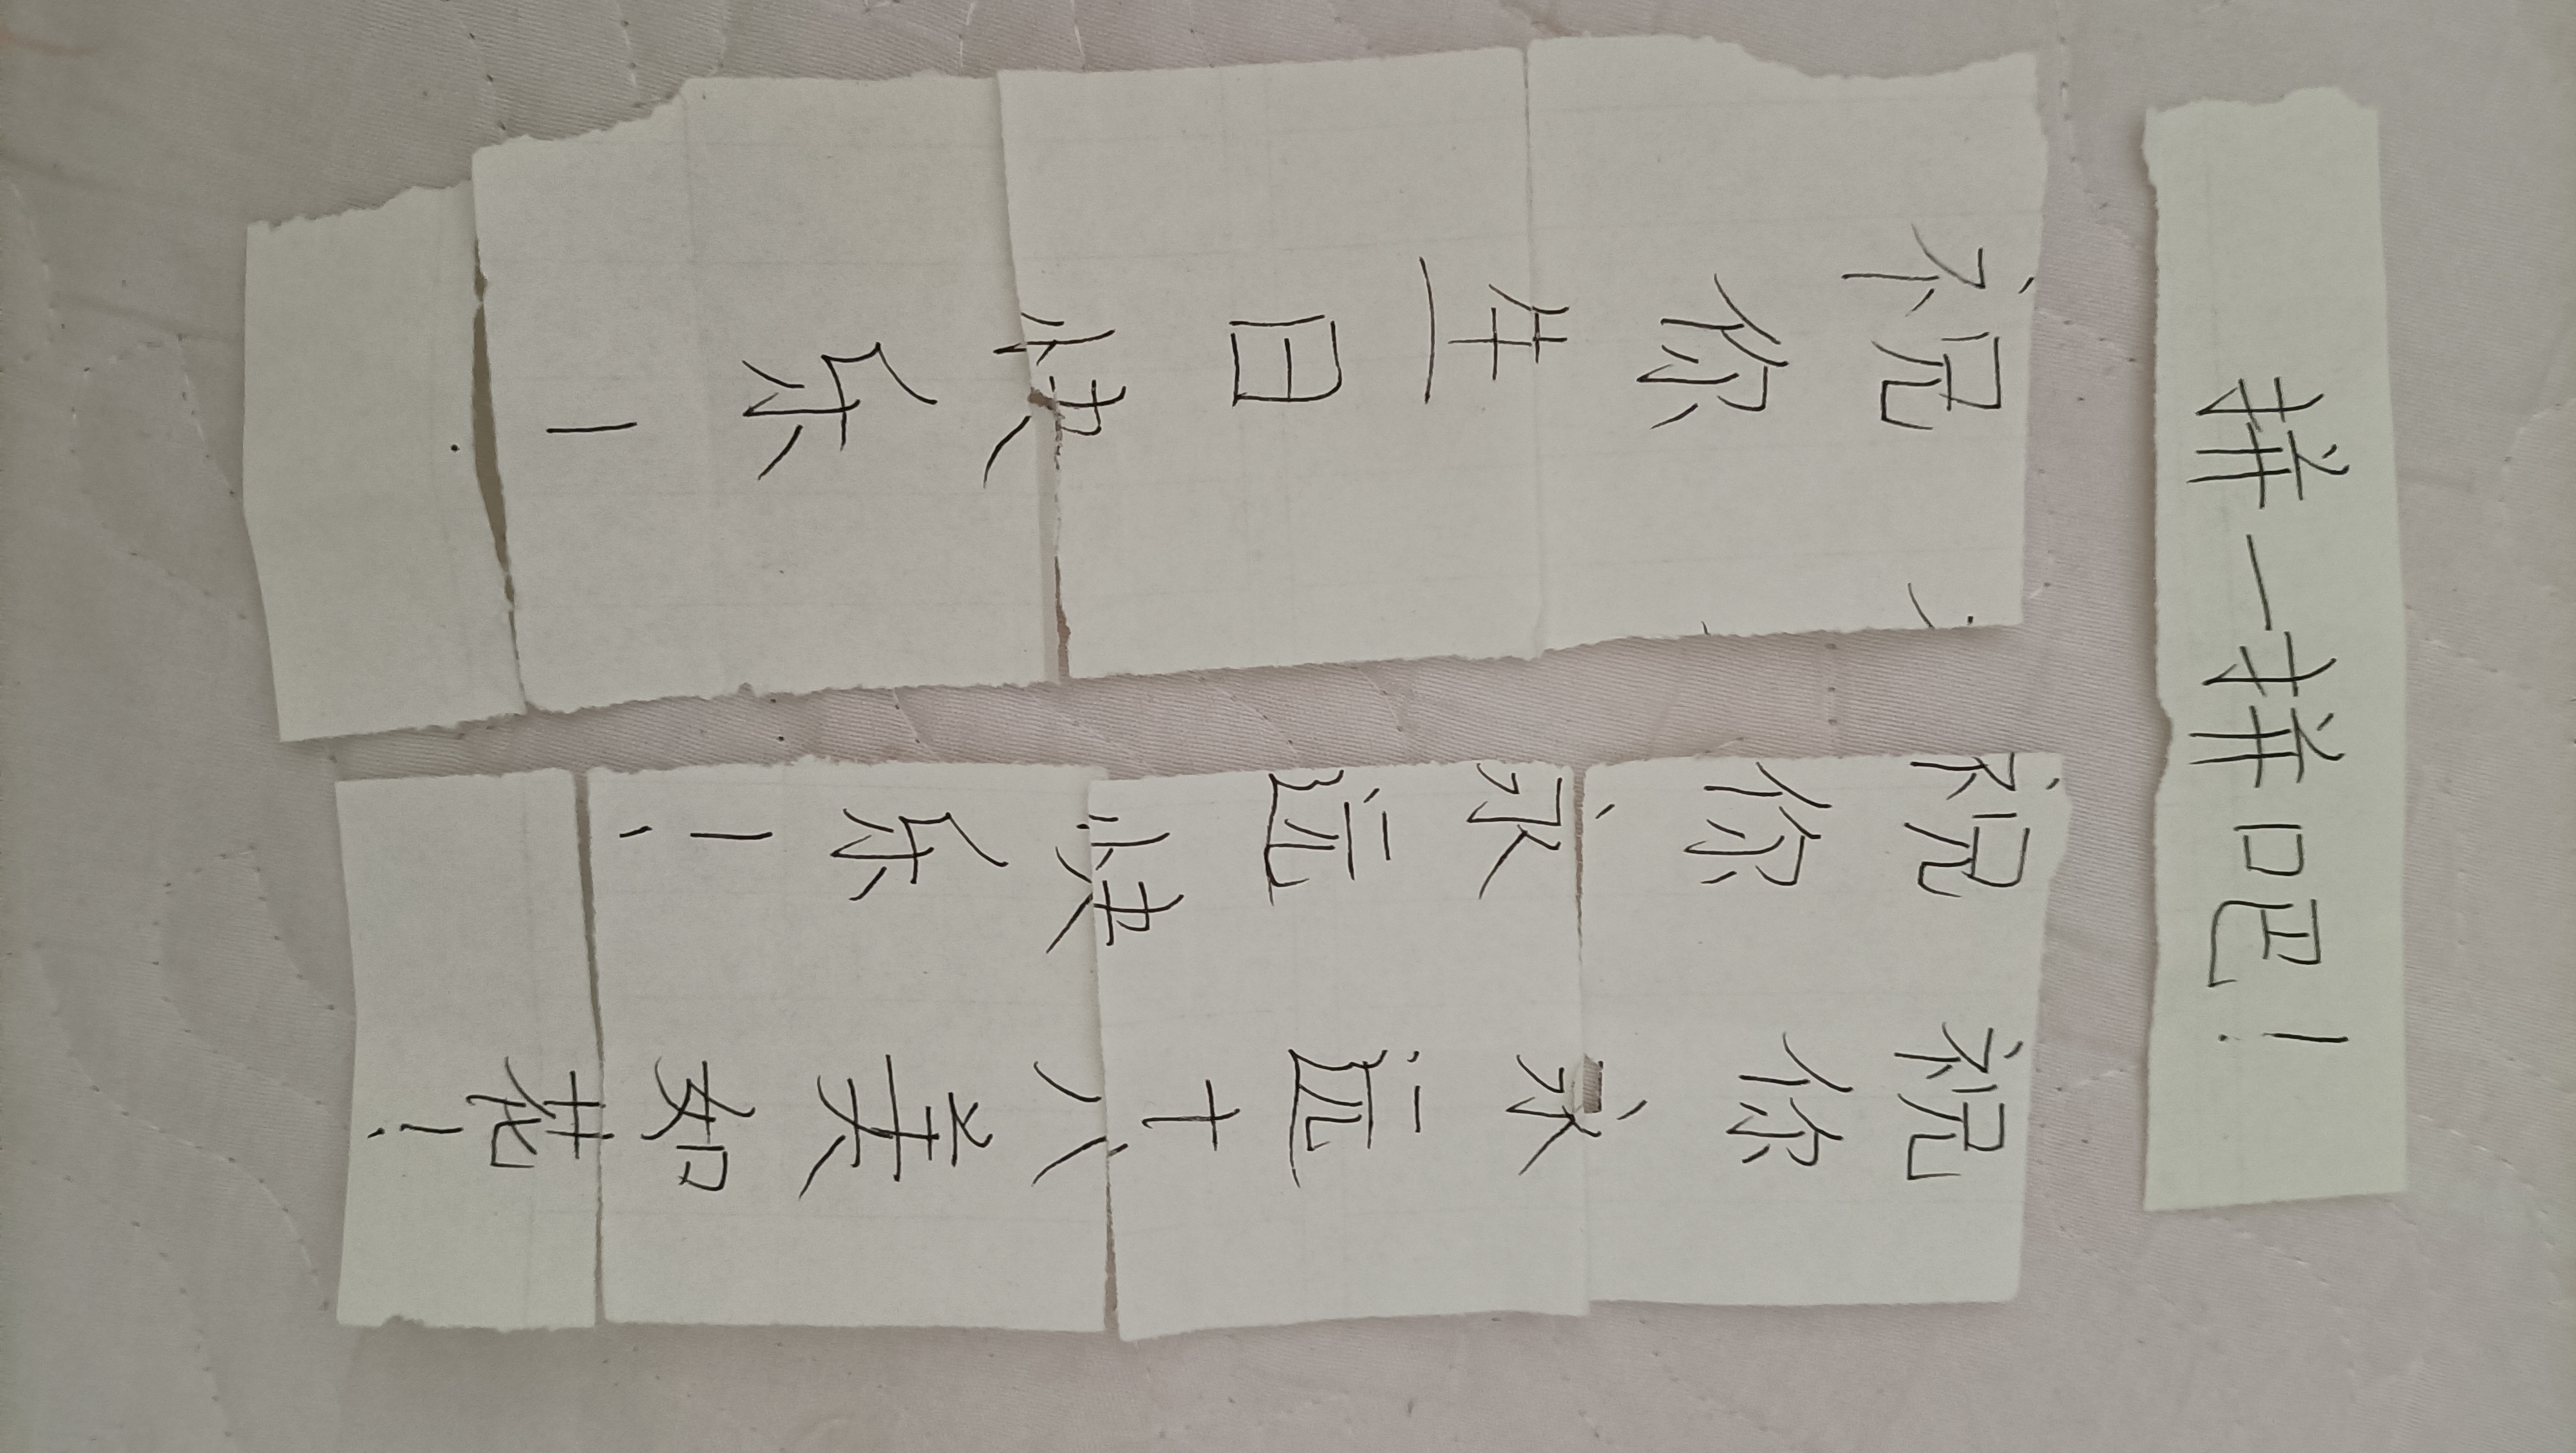 拼一拼吧！
祝你生日快乐！
祝你永远快乐！
祝你永远十八美如花！